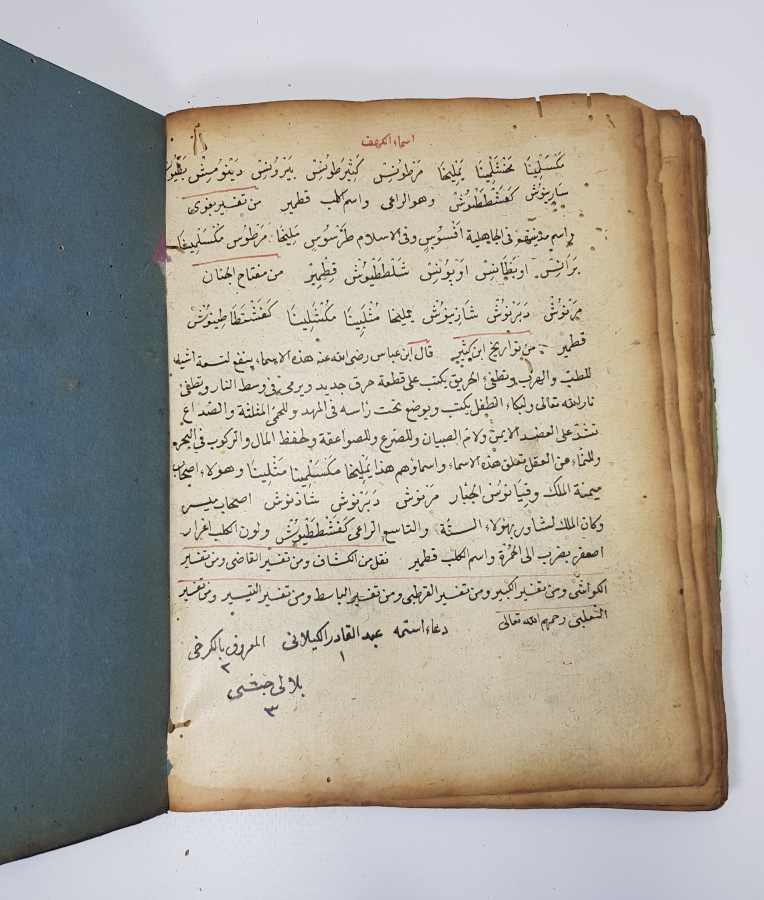 اسماء الكهف
مَكْسَلْمِينَا مَخْشَلْمِينَا يَمْلِيخَا مَرْطُونِسْ كَثِيرَطُونِسْ بَيْرُونِسْ دَيْنُومِسْ
سَارِينُوشْ كَفَشْطَطْيُوشْ وهو الراعى واسم الكلب قطمير من تفسير بغوى
واسم مدينتهم فى الجاهلية افْسُوسِ وفى الاسلام طَرْسُوس يمليخا مَرْطُوس مَكْسَلْمِينَا
بَرَانِسْ اوبَطَانِسْ اوَيُونِسْ شَلَطَطْيُوشْ قِطْمِيرْ من مفتاح الجنان
مَرْنُوشْ دَبَرْنُوشْ شَاذِينُوشْ يمليخا مَثْلِينَا مَكْشَلِينَا كَفَشْتَطَاطِينُوشْ
قطمير من تواريخ ابن كثير قال ابن عباس رضى الله عنه هذه الاسماء ينفع لتسعة اشياء
للطلب والهرب وتطفئ الحريق يكتب على قطعة خرق جديد ويرمى فى وسط النار وتطفئ
باذن الله تعالى ولبكاء الطفل يكتب ويوضع تحت راسه فى المهد وللحمى المثلثة والصداع
تشدّ على العضد الايمن ولام الصبيان وللصرع وللصواعقة ولحفظ المال والركوب فى البحر
وللنماء من العقل تعلق هذه الاسماء واسماؤهم هذا يَمْلِيخَا مَكْسَلْمِينَا مَثْلِينَا وهولاء اصحاب
ميمنة الملك دقيانوس الجبار مَرْنُوشْ دَبَرْنُوشْ شَاذنُوشْ اصحاب ميسر
وكان الملك يشاور بهولاء الستّة والتاسع الراعى كَفَشْطَطْيُوشْ ولون الكلب اغرار
اصفر يضرب الى الحُمْرَة واسم الكلب قطمير نقل من الكشاف ومن تفسير القاضى ومن تفسير
الكواشى ومن تفسير الكبير ومن تفسير القرطبى ومن تفسير الباسط ومن تفسير التيسير ومن تفسير
الثعلبى رحمهم الله تعالى
دعاء استمه عبد القادر الكيلانى المعروف بالكرخى
١ ٢
بلالى حبشى
٣